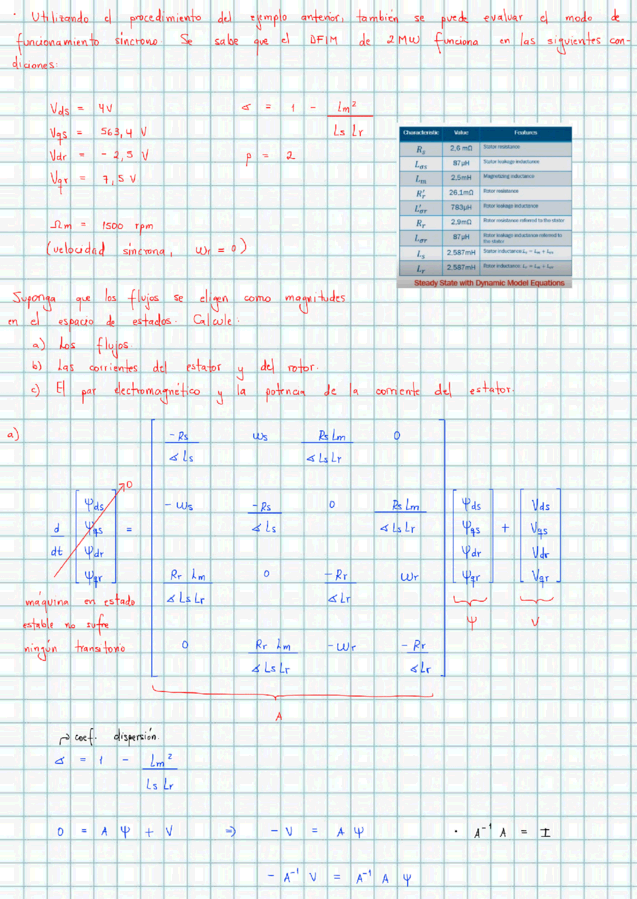 · Utilizando el procedimiento del ejemplo anterior, también se puede evaluar el modo de
funcionamiento síncrono Se sabe que el DFIM de 2 MW funciona en las siguientes con-
diciones:
Vds = 4V
∢ = 1 - Lm² / Ls Lr
Vqs = 563,4 V
Vdr = - 2,5 V
p = 2
Vqr = 7,5 V
Ωm = 1500 rpm
(velocidad síncrona, ωr = 0)
Characteristic Value Features
Rs 2,6 mΩ Stator resistance
Lσs 87 μH Stator leakage inductance
Lm 2,5mH Magnetizing inductance
R'r 26.1mΩ Rotor resistance
L'σr 783μH Rotor leakage inductance
Rr 2.9mΩ Rotor resistance referred to the stator
Lσr 87 μH Rotor leakage inductance referred to
the stator
Ls 2,587mH Stator inductance Ls = Lm + Lσs
Lr 2,587mH Rotor inductance: Lr = Lm + Lσr
Steady State with Dynamic Model Equations
Suponga que los flujos se eligen como magnitudes
en el espacio de estados. Calcule:
a) Los flujos.
b) Las corrientes del estator y del rotor.
c) El par electromagnético y la potencia de la corriente del estator.
a)
-Rs / ∢ Ls ωs Rs Lm / ∢ Ls Lr 0
0
d/dt [ψds ψqs ψdr ψqr] =
-ωs -Rs / ∢ Ls 0 Rs Lm / ∢ Ls Lr
[ψds ψqs ψdr ψqr] + [Vds Vqs Vdr Vqr]
Rr Lm / ∢ Ls Lr 0 -Rr / ∢ Lr ωr
máquina en estado
estable no sufre
ningún transitorio
ψ V
0 Rr Lm / ∢ Ls Lr -ωr -Rr / ∢ Lr
A
coef. dispersión.
∢ = 1 - Lm² / Ls Lr
0 = A ψ + V ⇒ - V = A ψ · A⁻¹ A = I
- A⁻¹ V = A⁻¹ A ψ